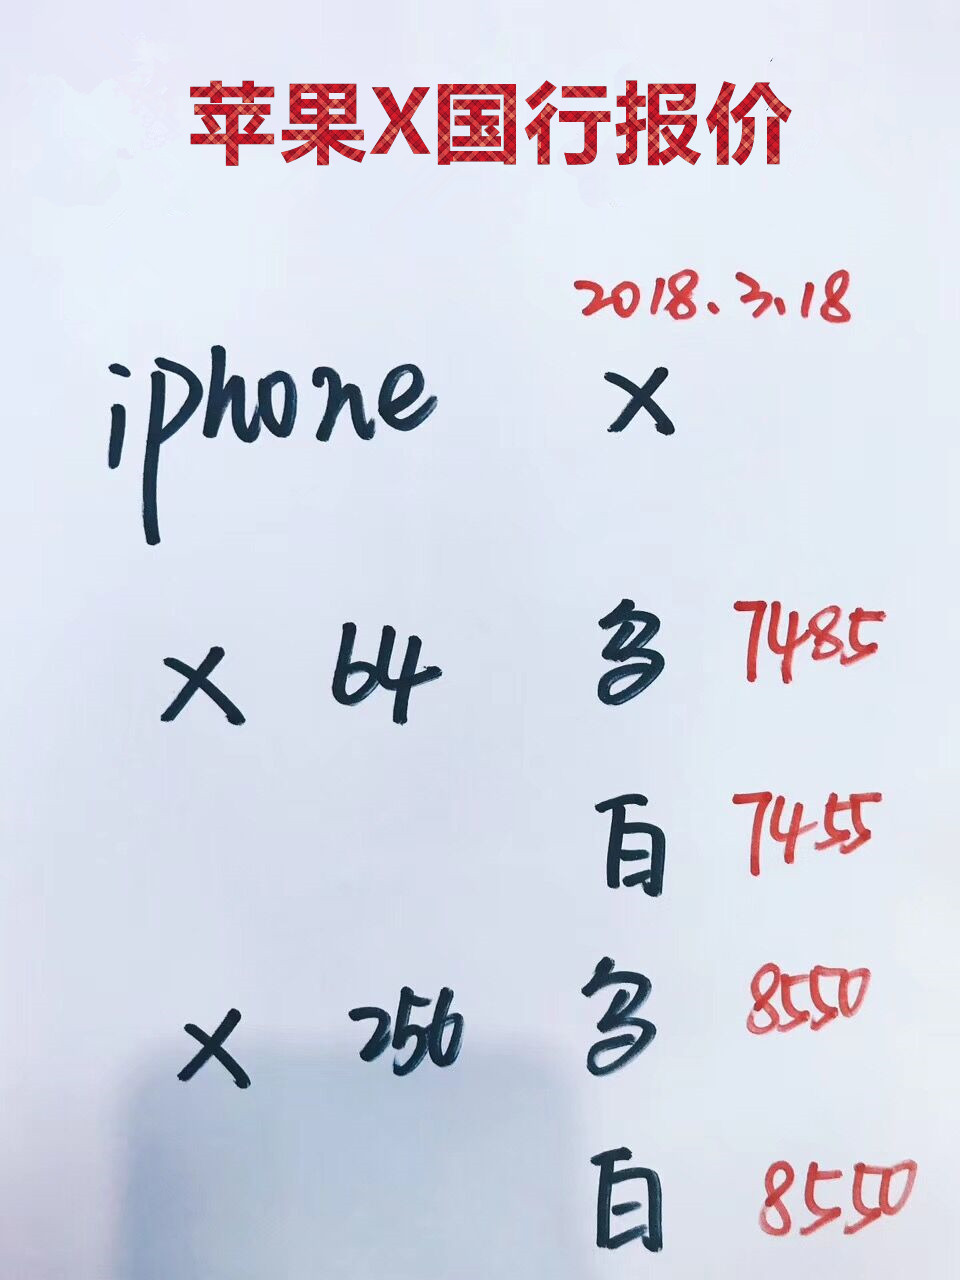 苹果X国行报价
2018.3.18
iphone X
X 64 多 7485
白 7455
X 256 多 8550
白 8550